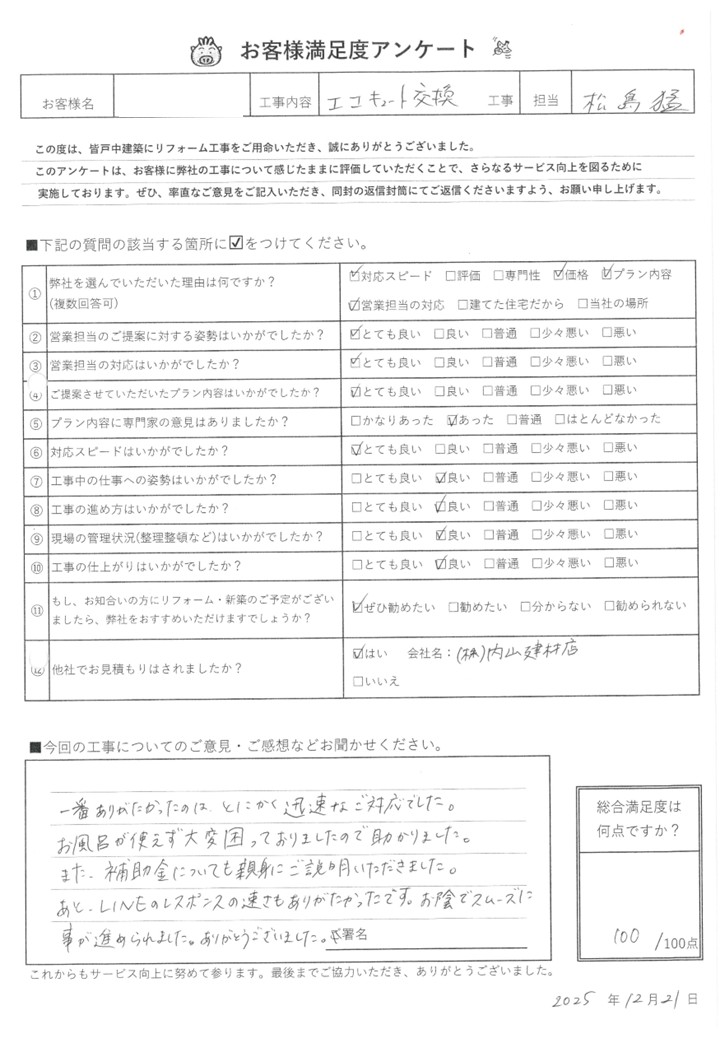 お客様満足度アンケート
お客様名 工事内容 エコキュート交換 工事 担当 松島猛
この度は、皆戸中建築にリフォーム工事をご用命いただき、誠にありがとうございました。
このアンケートは、お客様に弊社の工事について感じたままに評価していただくことで、さらなるサービス向上を図るために
実施しております。ぜひ、率直なご意見をご記入いただき、同封の返信封筒にてご返信くださいますよう、お願い申し上げます。
■下記の質問の該当する箇所に☑をつけてください。
① 弊社を選んでいただいた理由は何ですか？ ☑対応スピード □評価 □専門性 ☑価格 ☑プラン内容
(複数回答可) ☑営業担当の対応 □建てた住宅だから □当社の場所
② 営業担当のご提案に対する姿勢はいかがでしたか？ ☑とても良い □良い □普通 □少々悪い □悪い
③ 営業担当の対応はいかがでしたか？ ☑とても良い □良い □普通 □少々悪い □悪い
④ ご提案させていただいたプラン内容はいかがでしたか？ ☑とても良い □良い □普通 □少々悪い □悪い
⑤ プラン内容に専門家の意見はありましたか？ □かなりあった ☑あった □普通 □ほとんどなかった
⑥ 対応スピードはいかがでしたか？ ☑とても良い □良い □普通 □少々悪い □悪い
⑦ 工事中の仕事への姿勢はいかがでしたか？ □とても良い ☑良い □普通 □少々悪い □悪い
⑧ 工事の進め方はいかがでしたか？ □とても良い ☑良い □普通 □少々悪い □悪い
⑨ 現場の管理状況(整理整頓など)はいかがでしたか？ □とても良い ☑良い □普通 □少々悪い □悪い
⑩ 工事の仕上がりはいかがでしたか？ □とても良い ☑良い □普通 □少々悪い □悪い
⑪ もし、お知合いの方にリフォーム・新築のご予定がござい
ましたら、弊社をおすすめいただけますでしょうか？ ☑ぜひ勧めたい □勧めたい □分からない □勧められない
⑫ 他社でお見積もりはされましたか？ ☑はい 会社名：(株)内山建材店
□いいえ
■今回の工事についてのご意見・ご感想などお聞かせください。
一番ありがたかったのは、とにかく迅速なご対応でした。
お風呂が使えず大変困っておりましたので助かりました。
また、補助金についても親身にご説明いただきました。
あと、LINEのレスポンスの速さもありがたかったです。お陰でスムーズに
事が進められました。ありがとうございました。
署名
総合満足度は
何点ですか？
100 /100点
これからもサービス向上に努めて参ります。最後までご協力いただき、ありがとうございました。
2025 年 12月 21日